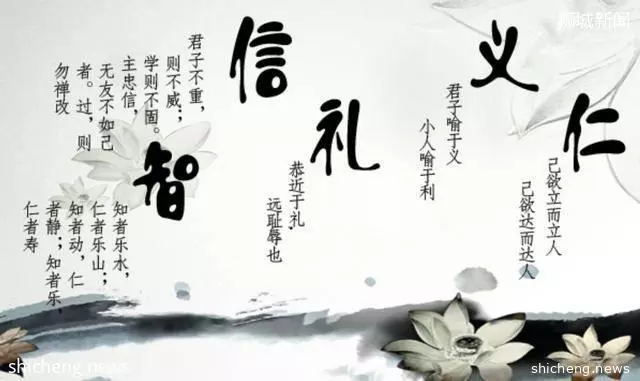 狮城新闻
仁
己欲立而立人
己欲达而达人
义
君子喻于义
小人喻于利
礼
恭近于礼，
远耻辱也
信
君子不重，
则不威；
学则不固。
主忠信，
无友不如己
者。过，则
勿禅改
智
知者乐水，
仁者乐山；
知者动，仁
者静；知者乐，
仁者寿
shicheng.news
shicheng.news